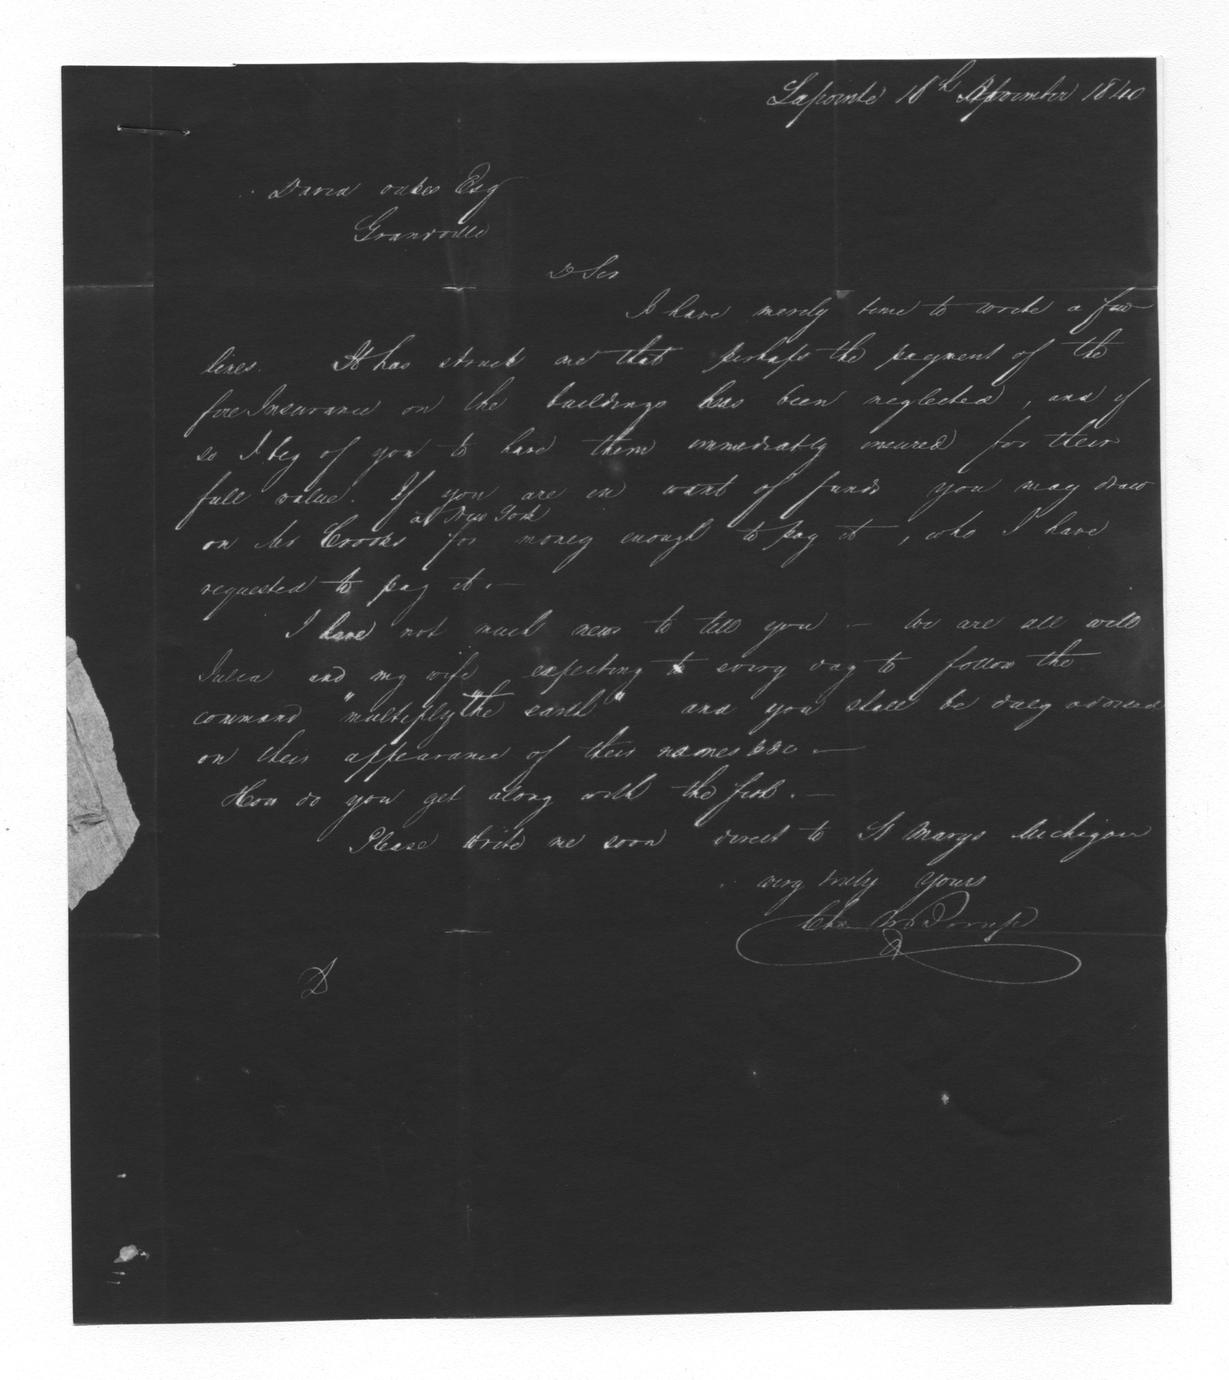 Lapointe 18th November 1840
David Oakes Esq
Granville
D Sir
I have merely time to write a few
lines. It has struck me that perhaps the payment of the
fire Insurance on the buildings has been neglected, and if
so I beg of you to have them immediately insured for their
full value. If you are in want of funds you may draw
at New York
on Mr Crooks for money enough to pay it, who I have
requested to pay it. —
I have not much news to tell you — We are all well
Julia and my wife expecting every day to follow the
command "multiply the earth" and you shall be duly advised
on their appearance of their names &c —
How do you get along with the fish. —
Please write me soon direct to St Marys Michigan
very truly yours
Chs W Borup